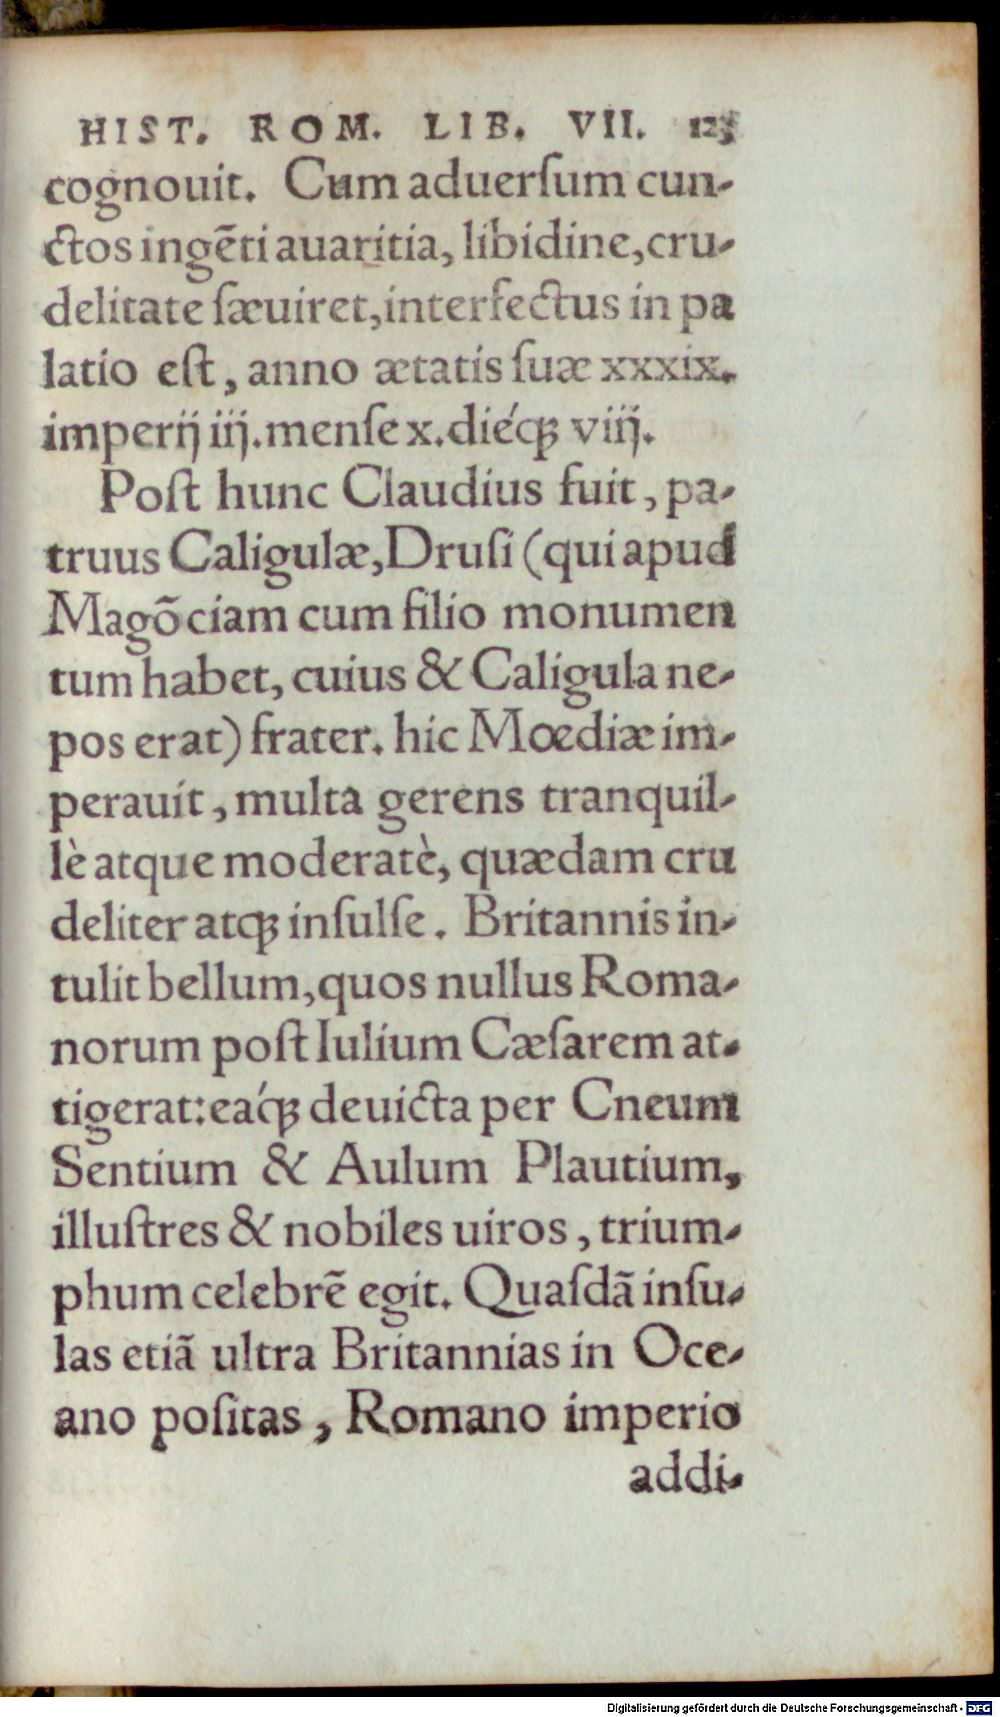 HIST. ROM. LIB. VII. 123
cognouit. Cum aduerſum cun-
ctos ingẽti auaritia, libidine, cru-
delitate ſæuiret, interfectus in pa
latio eſt, anno ætatis ſuæ xxxix.
imperij iij. menſe x. diéq; viij.
Poſt hunc Claudius fuit, pa-
truus Caligulæ, Druſi (qui apud
Magõciam cum filio monumen
tum habet, cuius & Caligula ne-
pos erat) frater. hic Mœdiæ im-
perauit, multa gerens tranquil-
lè atque moderatè, quædam cru
deliter atq; inſulſe. Britannis in-
tulit bellum, quos nullus Roma-
norum poſt Iulium Cæſarem at-
tigerat: eáq; deuicta per Cneum
Sentium & Aulum Plautium,
illuſtres & nobiles uiros, trium-
phum celebrẽ egit. Quaſdã inſu-
las etiã ultra Britannias in Oce-
ano poſitas, Romano imperio
addi-
Digitalisierung gefördert durch die Deutsche Forschungsgemeinschaft - DFG